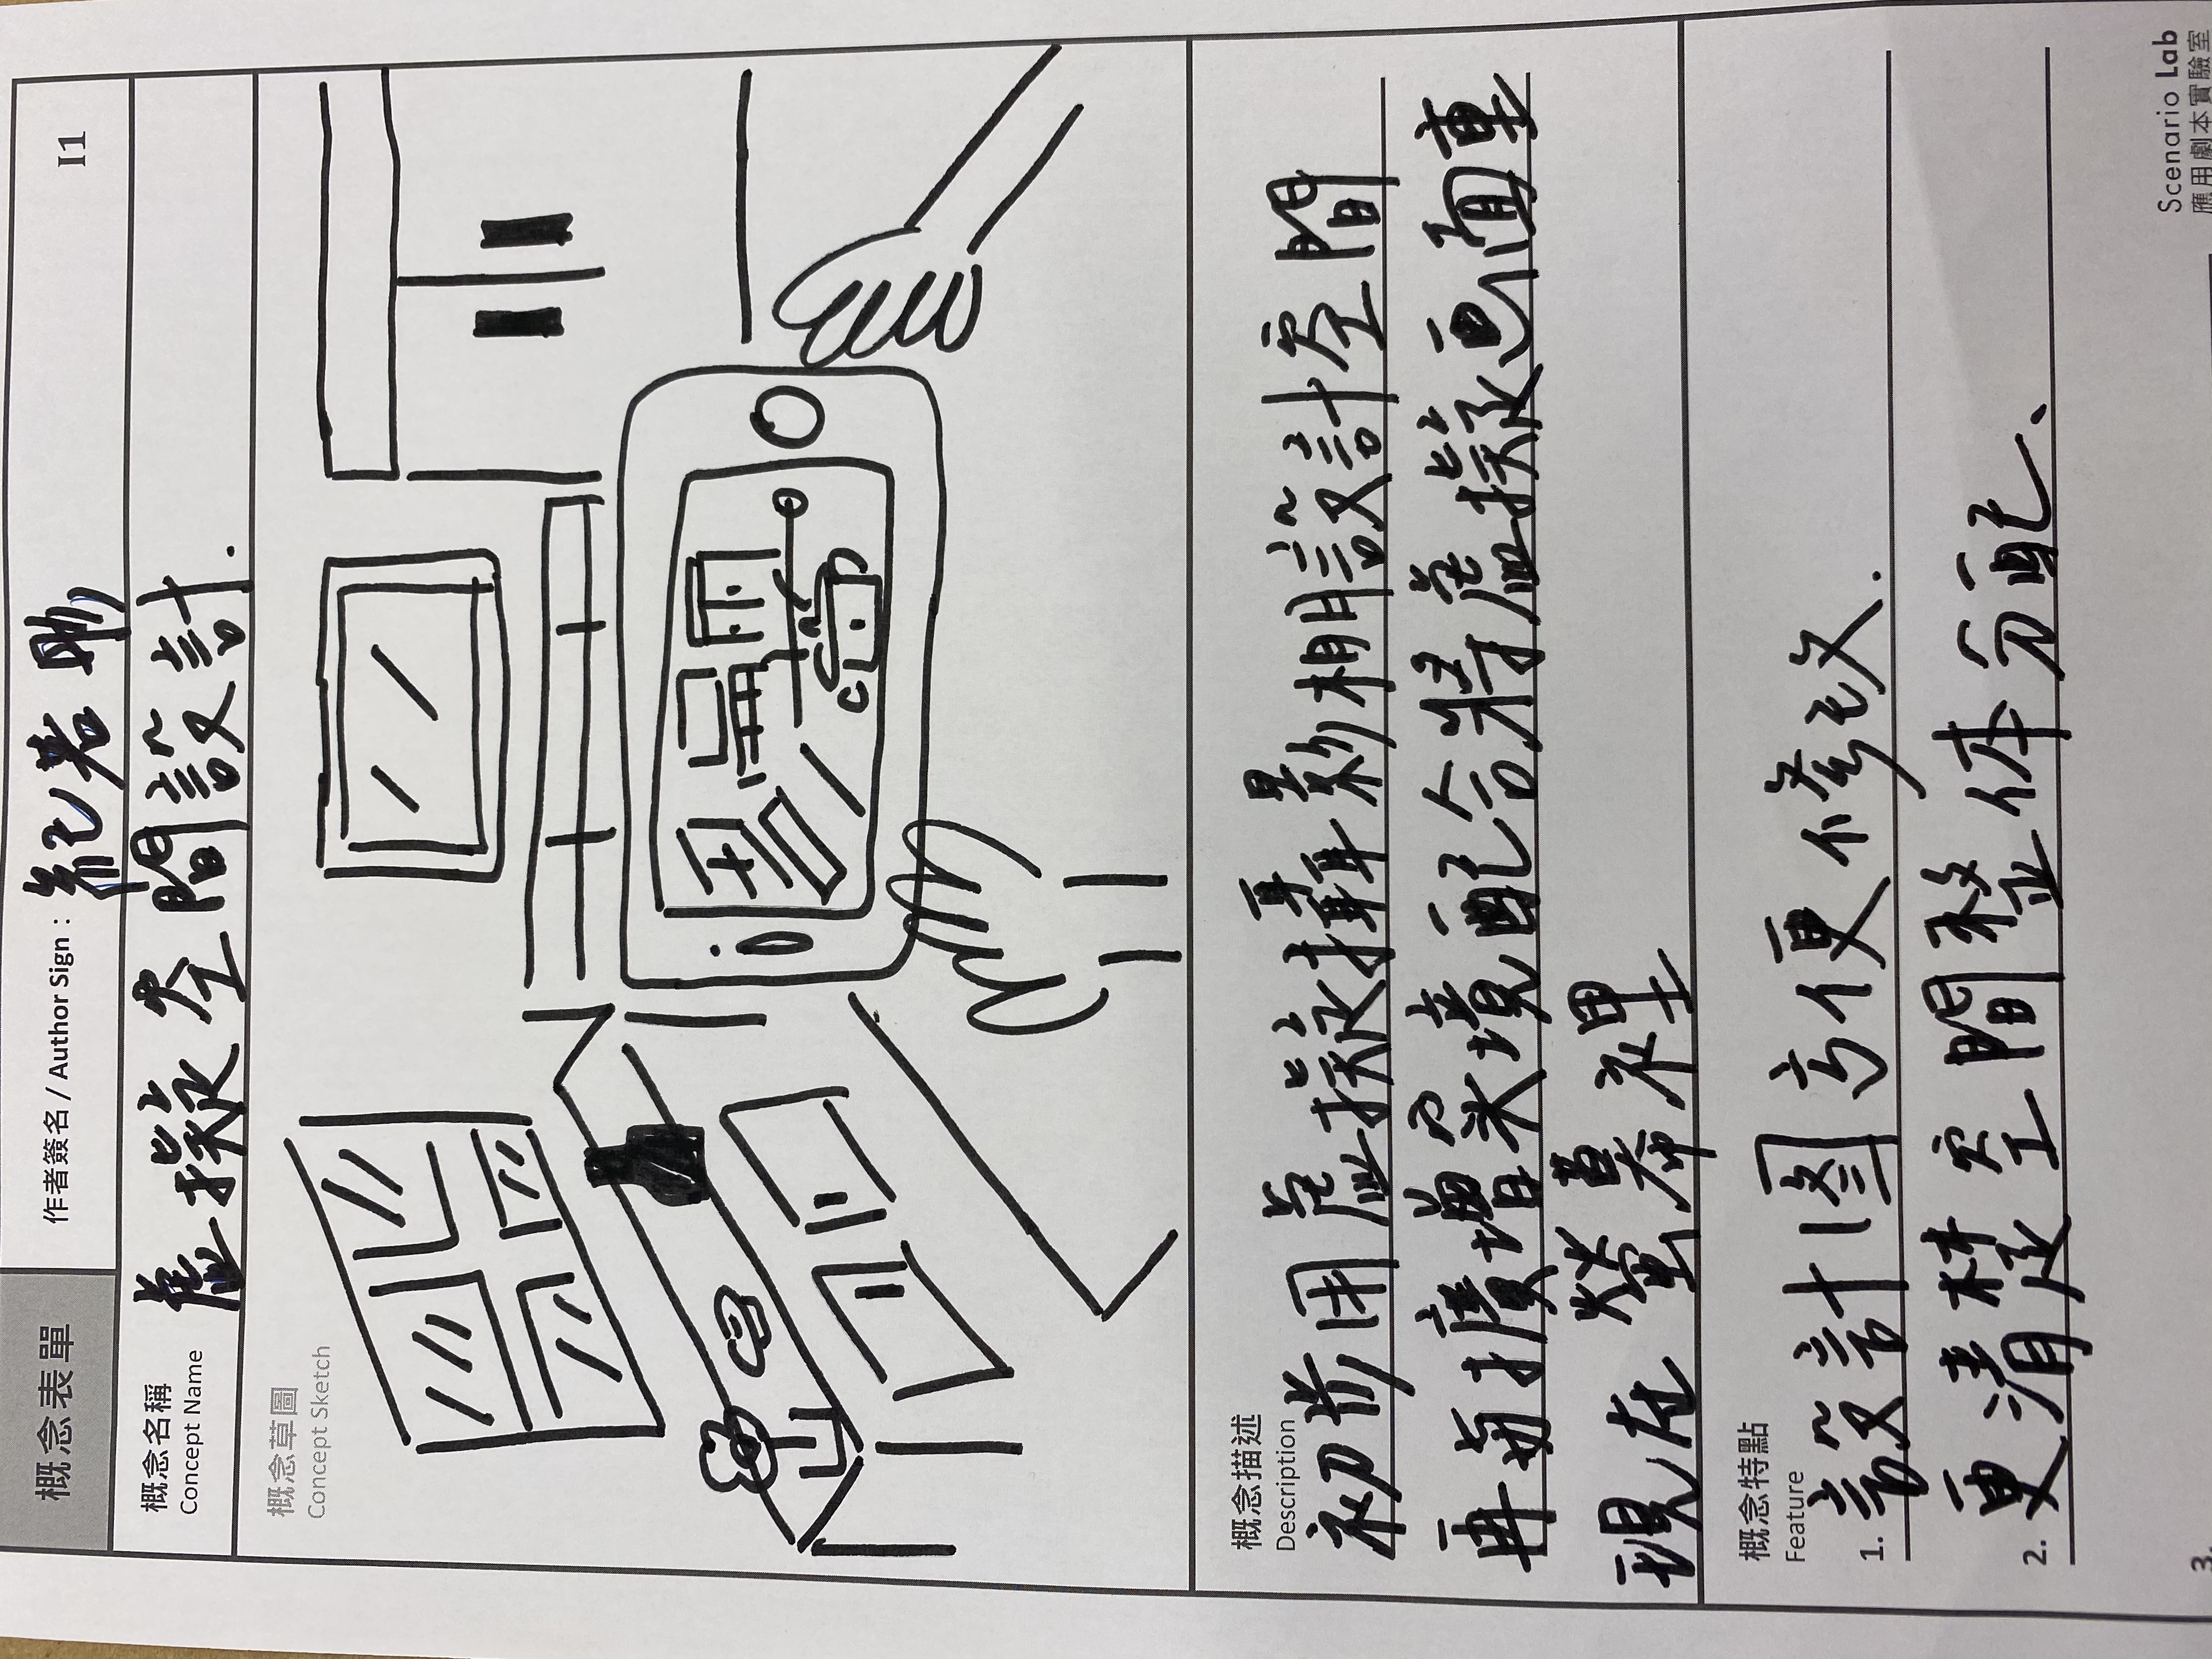 概念表單
作者簽名 / Author Sign : 紀若彤
I1
概念名稱
Concept Name
虛擬空間設計.
概念草圖
Concept Sketch
概念描述
Description
初步用虛擬攝影棚設計空間
再与擴增实境配合將虛擬画面重
現在螢幕裡
概念特點
Feature
1. 設計图方便修改.
2. 更清楚空間整体分配、
3.
Scenario Lab
應用劇本實驗室